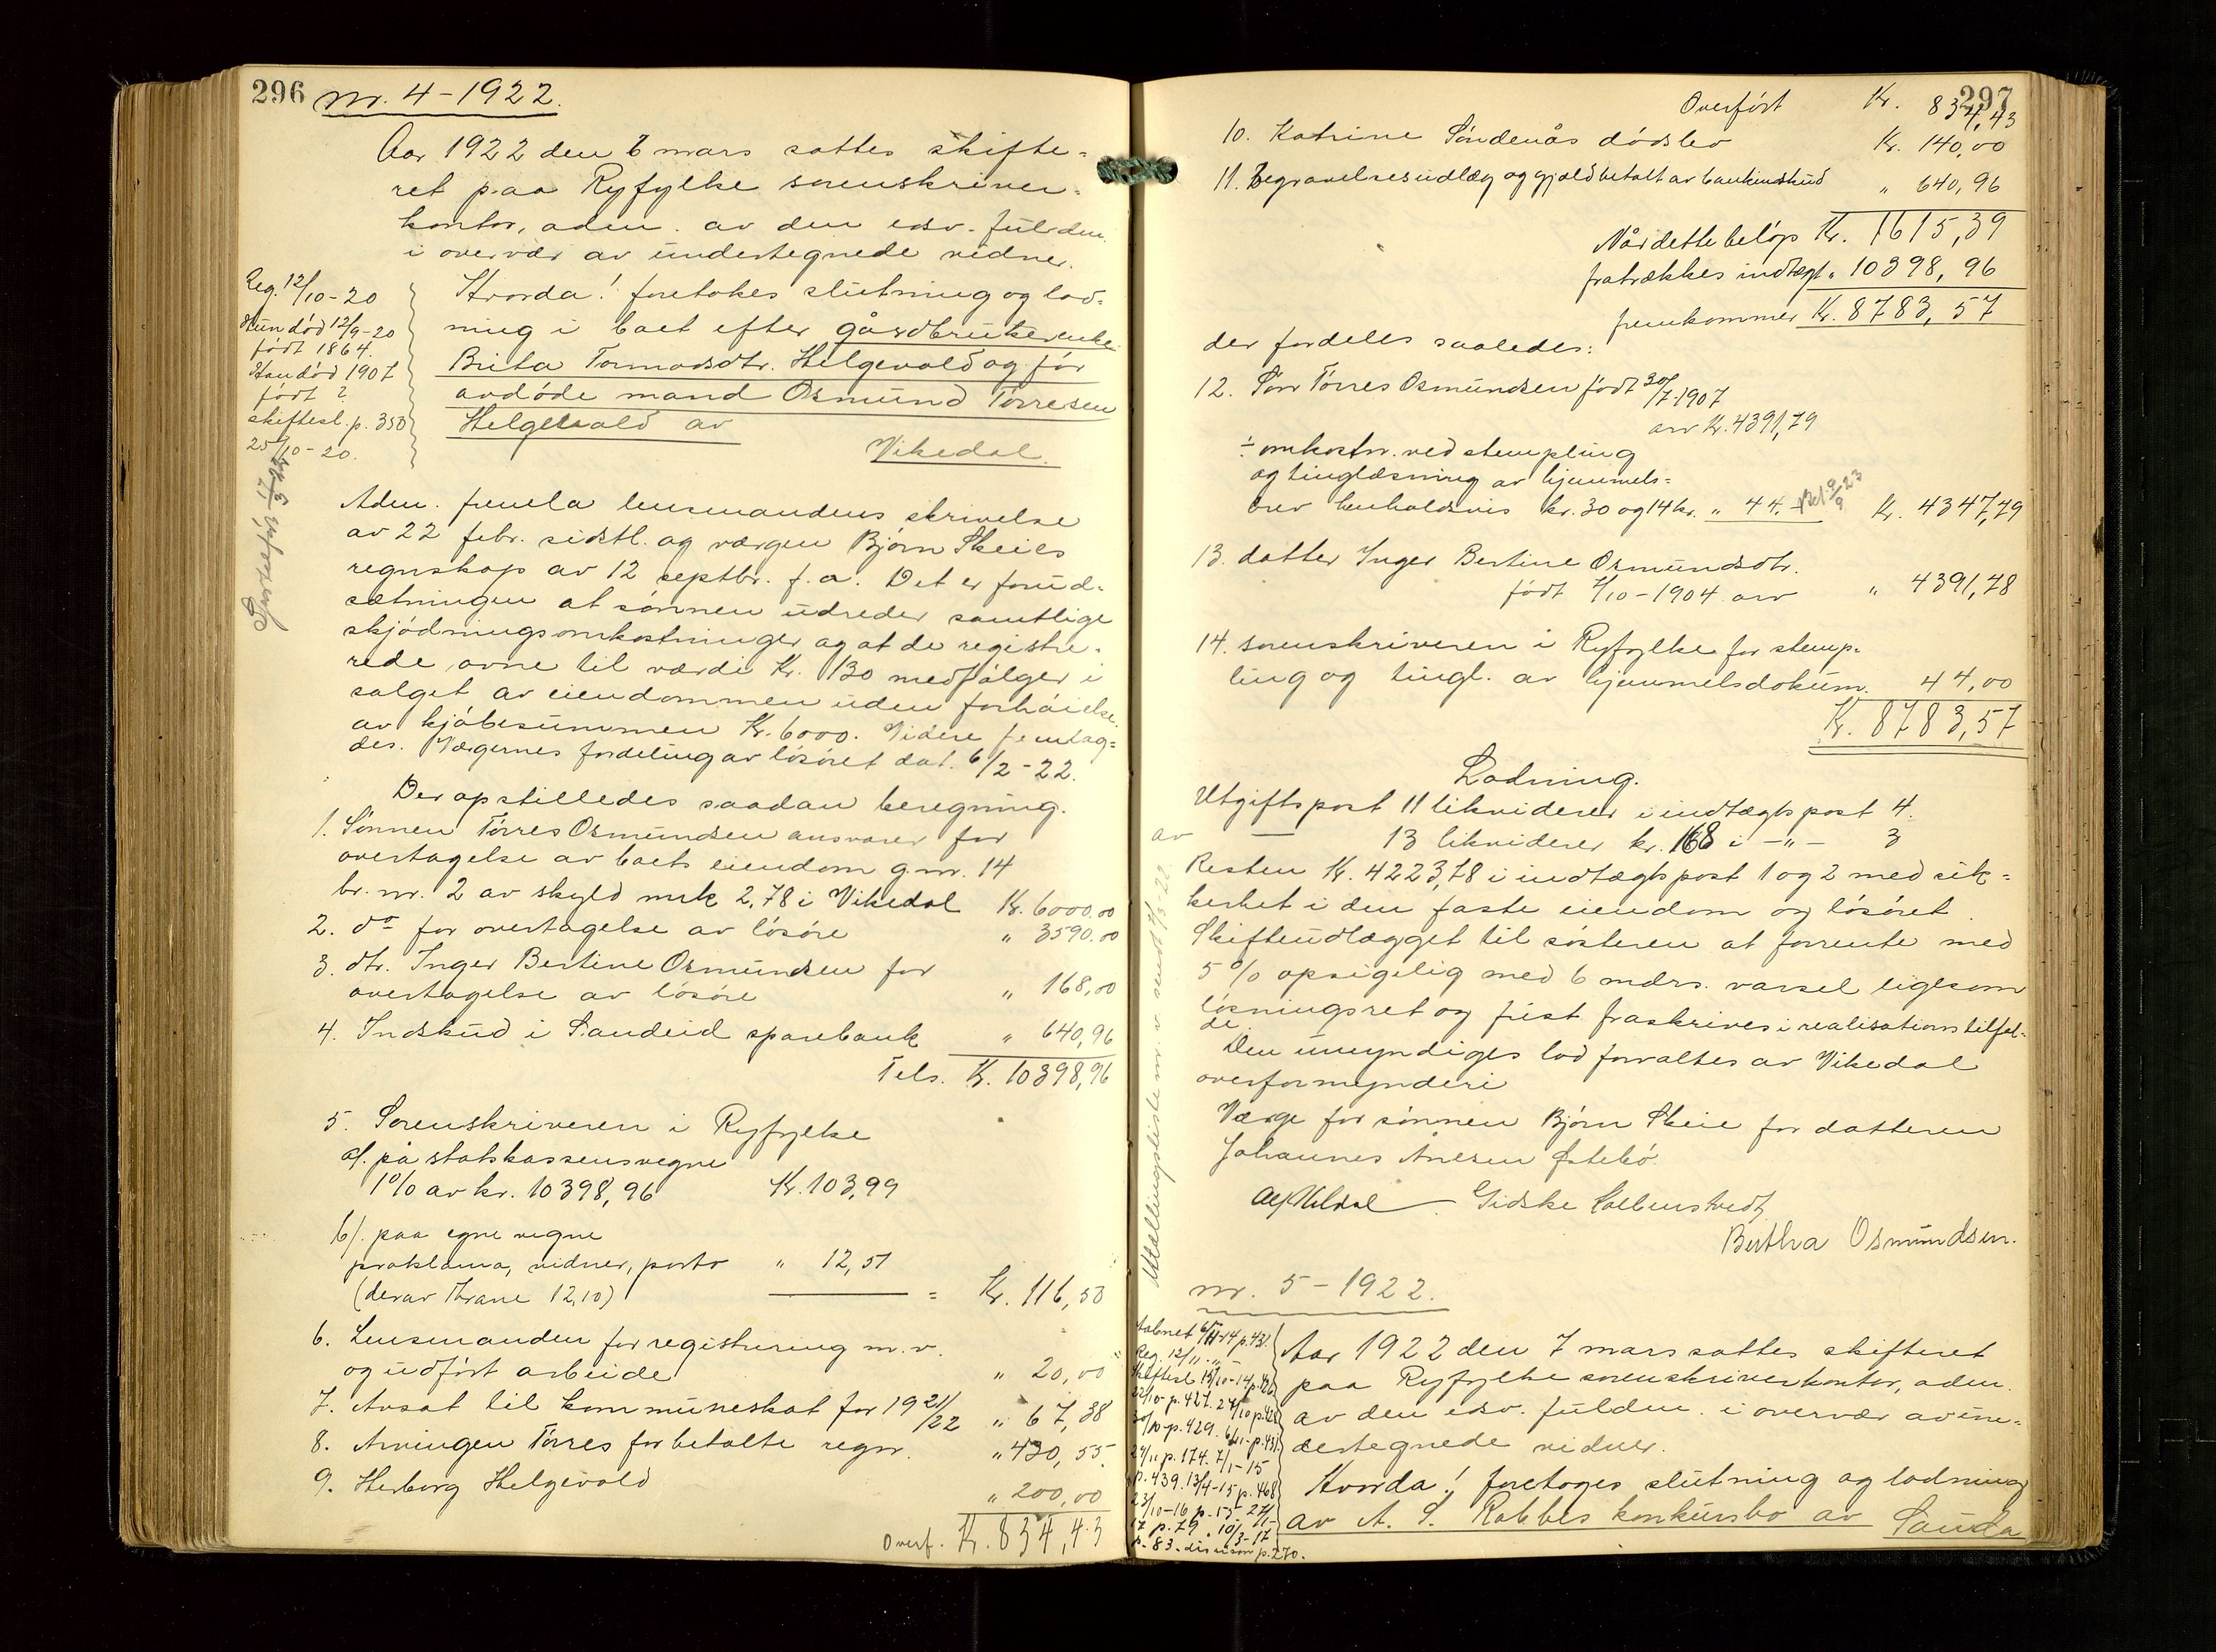 296 nr. 4-1922.
Aar 1922 den 6 mars sattes skifte=
ret paa Ryfylke sorenskriver=
kontor, adm. av den edsv. fuldm.
i overvær av undertegnede vidner.
Hvorda! foretokes slutning og lod=
ning i boet efter gårdbrukerenke
Brita Tormodsdtr. Helgevold og før
avdøde mand Osmund Tørresen
Helgevold av
Vikedal.
Reg. 12/10-20
Hun död 12/9-20
født 1864.
Han død 1907
født ?
skiftesl. p. 350
25/10-20.
Adm. fremla lensmandens skrivelse
av 22 febr. sidstl. og værgen Bjørn Skeies
regnskap av 12 septbr. f.a. Det er forud=
sætningen at sönnen udreder samtlige
skjödningsomkostninger og at de registre=
rede ovne til værdi Kr. 130 medfölger i
salget av eiendommen uden forhöielse
av kjöbesummen Kr. 6000. Videre fremlag=
des. Værgernes fordeling av lösöret dat. 6/2-22.
Der opstilledes saadan beregning.
1. Sönnen Törres Osmundsen ansvarer for
overtagelse av boets eiendom g.nr. 14
br. nr. 2 av skyld mrk 2,78 i Vikedal Kr. 6000,00
2. do for overtagelse av lösöre " 3590.00
3. dtr. Inger Bertine Osmundsen for
overtagelse av lösöre " 168,00
4. Indskud i Sandeid sparebank " 640,96
Tels. Kr. 10398,96
5. Sorenskriveren i Ryfylke
a/. på statskassens vegne
1% av kr. 10398,96 Kr. 103,99
b/. paa egne vegne
proklama, vidner, porto " 12,51
(derav Thrane 12,10) = Kr. 116,50
6. Lensmanden for registrering m.v.
og udført arbeide " 20,00
7. Avsat til kommuneskat for 1921/22 " 67,38
8. Arvingen Törres for betalte regn. " 430,55.
9. Herborg Helgevold " 200,00
Overf. Kr. 834,43
297
Overfört Kr. 834,43
10. Katrine Söndenås dödsbo Kr. 140,00
11. Begravelsesudlæg og gjæld betalt av bankindskud " 640,96
Når dette belöp Kr. 1615,39
fratrækkes indtægt " 10398,96
fremkommer Kr. 8783,57
der fordeles saaledes:
12. Sön Törres Osmundsen født 30/7-1907
arv Kr. 4391,79
÷ omkostn. ved stempling
og tinglæsning av hjemmels=
brev henholdsvis kr. 30 og 14 kr. " 44.- Kr. 4347,79
13. datter Inger Bertine Osmundsdtr.
født 4/10-1904 arv " 4391,78
14. sorenskriveren i Ryfylke for stemp=
ling og tingl. av hjemmelsdokum. 44,00
Kr. 8783,57
Lodning.
Utgiftspost 11 likviderer i indtægtspost 4.
av — 13 likviderer kr. 168 i -"- 3
Resten Kr. 4223,78 i indtægtspost 1 og 2 med sik=
kerhet i den faste eiendom og lösöret.
Skifteudlægget til söster­en at forrente med
5% opsigelig med 6 mdrs. varsel ligesom
lösningsret og frist fraskrives i realisationstilfæl=
de.
Den umyndiges lod forvaltes av Vikedal
overformynderi
Værge for sönnen Bjørn Skeie for datteren
Johannes Anesen Østebö.
Alf Kildal Gidske
Bertha Osmundsen.
nr. 5-1922.
Aar 1922 den 7 mars sattes skifteret
paa Ryfylke sorenskriverkontor, adm.
av den edsv. fuldm. i overvær av un=
dertegnede vidner.
Hvorda! foretoges slutning og lodning
av A. S. Rabbes konkursbo av Sauda